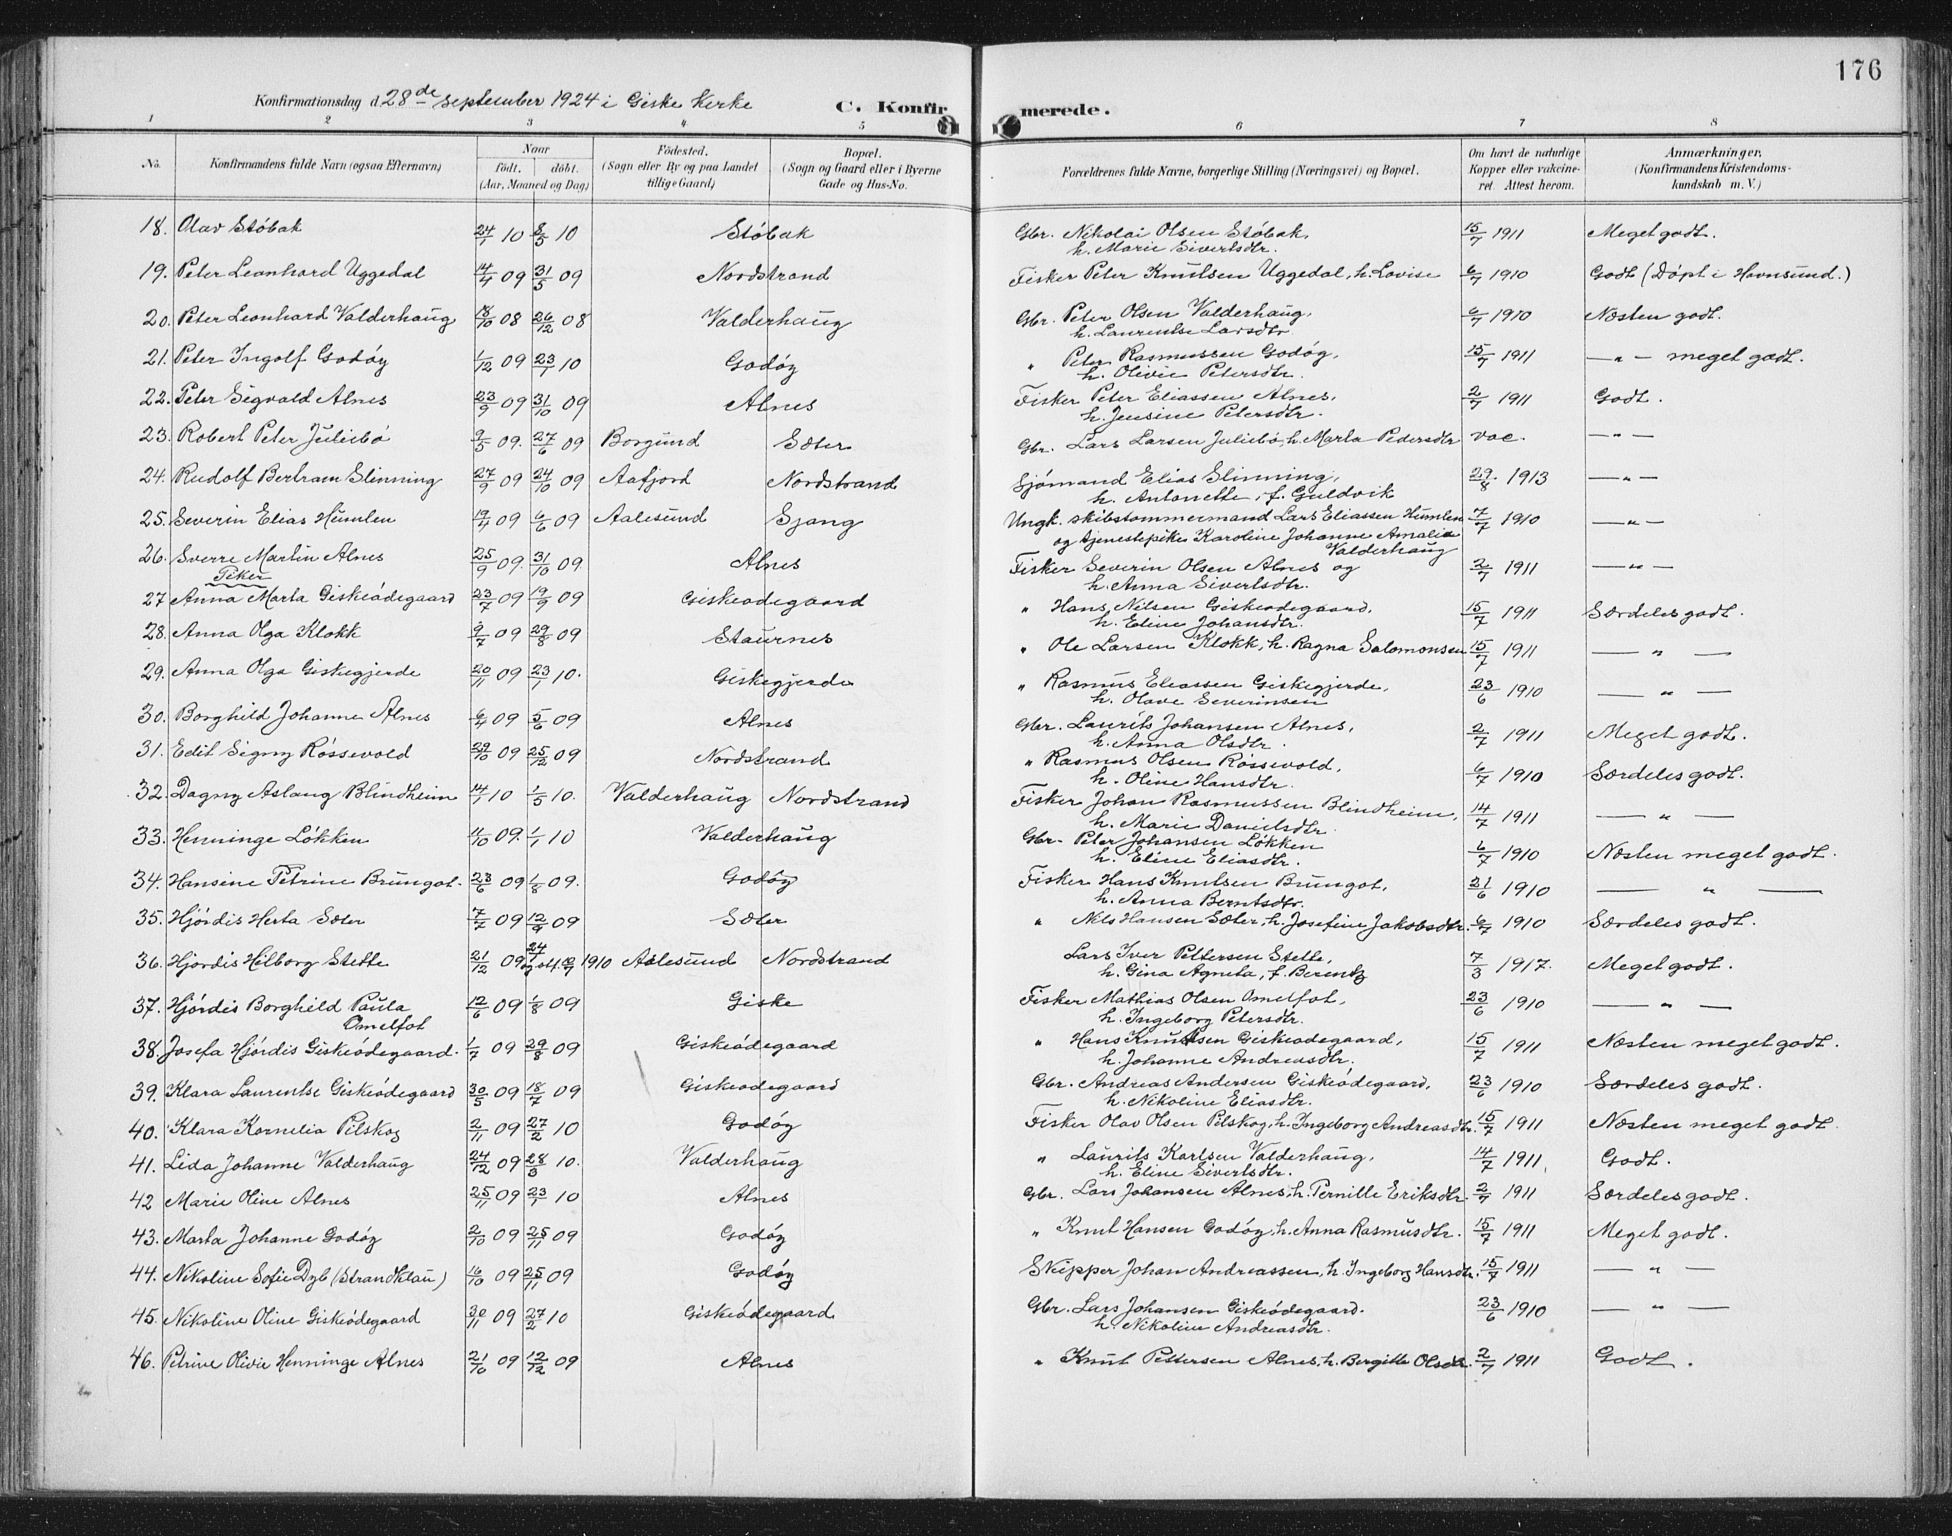 176
Konfirmationsdag d. 28de september 1924 i Giske Kerke C. Konfirmerede.
1 2 3 4 5 6 7 8
No. Konfirmandens fulde Navn (ogsaa Efternavn) Naar födt. döbt. (Aar, Maaned og Dag) Födested. (Sogn eller By og paa Landet tillige Gaard) Bopæl. (Sogn og Gaard eller i Byerne Gade og Hus-No. Forældrenes fulde Navne, borgerlige Stilling (Næringsvei) og Bopæl. Om havt de naturlige Kopper eller vakcineret. Attest herom. Anmærkninger. (Konfirmandens Kristendomskundskab m. V.)
18. Olav Stöbak 24/1 10 8/5 10 Stöbak Gbr. Nikolai Olsen Stöbak, h. Marie Sivertsdtr. 15/7 1911 Meget godt.
19. Peter Leonhard Uggedal 14/4 09 31/5 09 Nordstrand Fisker Peter Knutsen Uggedal, h. Lovise 6/7 1910 Godt (Döpt i Havnsund.)
20. Peter Leonhard Valderhaug 18/10 08 26/12 08 Valderhaug Gbr. Peter Olsen Valderhaug, h. Laurentse Larsdtr 6/7 1910 Næsten godt.
21. Peter Ingolf Godöy 1/12 09 23/1 10 Godöy " Peter Rasmussen Godöy, h. Olivie Petersdtr. 15/7 1911 — " — meget godt.
22. Peter Sigvald Alnes 23/9 09 31/10 09 Alnes Fisker Peter Eliassen Alnes, h. Jensine Petersdtr. 2/7 1911 Godt.
23. Robert Peter Juliebö 9/5 09. 27/6 09 Borgund Sæter Gbr. Lars Larsen Juliebö, h. Marta Pedersdtr vac. — " —
24. Rudolf Bertram Slinning 27/9 09 24/10 09 Aafjord Nordstrand Sjömand Elias Slinning, h. Antonette, f. Guldvik 29/8 1913 — " —
25. Severin Elias Humlen 19/4 09 6/6 09 Aalesund Gjøng Ungk. skibstømmermand Lars Eliassen Humlen og tjenestepike Karoline Johanne Amalia Valderhaug 7/7 1910 — " —
26. Sverre Martin Alnes 25/9 09. 31/10 09 Alnes Fisker Severin Olsen Alnes og h. Anna Sivertsdtr. 2/7 1911 — " —
Piker
27 Anna Marta Giskeödegaard 23/7 09 19/9 09 Giskeodegaard " Hans Nilsen Giskeodegaard, h. Eline Johansdtr. 15/7 1911 Særdeles godt.
28. Anna Olga Klokk 9/7 09 29/8 09 Staurnes " Ole Larsen Klokk, h. Ragna Salomonsen 15/7 1911 — " —
29. Anna Olga Giskegjerde 20/11 09 23/1 10. Giskegjerde " Rasmus Eleassen Giskegjerde, h. Olave Severinsen 23/6 1910 — " —
30. Borghild Johanne Alnes 6/4 09 5/6 09 Alnes Gbr. Laurits Johansen Alnes, h. Anna Olsdtr. 2/7 1911 Meget godt.
31. Edit Signy Rössevold 29/10 09 25/12 09 Nordstrand " Rasmus Olsen Rössevold, h. Oline Hansdtr. 6/7 1910 Særdeles godt.
32. Dagny Aslaug Blindheim 14/1 10 1/5 10. Valderhaug Nordstrand Fisker Johan Rasmussen Blindheim, h. Marie Danielsdtr 14/7 1911 — " —
33. Henninge Lökken 4/10 09. 1/1 10 Valderhaug Gbr. Peter Johansen Lökken h. Eline Eliasdtr. 6/7 1910 Næsten meget godt.
34. Hansine Petrine Brungot. 23/6 09 1/8 09. Godöy Fisker Hans Knutsen Brungot, h. Anna Berntsdtr. 21/6 1910 — " —
35. Hjördis Herta Sæter 7/7 09 12/9 09 Sæter " Nils Hansen Sæter, h. Josefine Jakobsdtr. 6/7 1910 Særdeles godt.
36. Hjördis Hilborg Stette 21/12 09 1910 Aalesund Nordstrand Lars Iver Pettersen Stette, h. Gina Agneta, f. Berentz 7/3 1917. Meget godt.
37. Hjördis Borghild Paula Omelfot 12/6 09 1/8 09 Giske Fisker Mathias Olsen Omelfot, h. Ingeborg Petersdtr. 23/6 1910 — " —
38. Josefa Hjördis Giskeödegaard. 1/7 09 29/8 09 Giskeödegaard " Hans Knutsen Giskeodegaard, h. Johanne Andreasdtr. 15/7 1911 Næsten meget godt.
39. Klara Laurentse Giskeödegaard 30/5 09 18/7 09 Giskeodegaard Gbr. Andreas Andersen Giskeödegaard, h. Nikoline Eliasdtr. 23/6 1910 Særdeles godt.
40. Klara Kornelia Pilskog 2/11 09 27/2 10 Godöy Fisker Olav Olsen Pilskog, h. Ingeborg Andreasdtr. 15/7 1911 Næsten meget godt.
41. Lida Johanne Valderhaug 24/12 09 28/3 10. Valderhaug " Laurits Karlsen Valderhaug, h. Eline Sivertsdtr. 14/7 1911. Godt.
42 Marie Oline Alnes 25/11 09 23/1 10 Alnes Gbr. Lars Johansen Alnes, h. Pernille Eriksdtr. 2/7 1911 Særdeles godt.
43. Marta Johanne Godöy 2/10 09 25/11 09 Godöy " Knut Hansen Godöy, h. Anna Rasmusdtr. 15/7 1911 Meget godt.
44. Nikoline Sofie Dyb (Strandklau) 16/10 09 25/11 09 Godöy Skipper Johan Andreassen, h. Ingeborg Hansdtr. 15/7 1911 — " —
45. Nikoline Oline Giskeödegaard 30/11 09 27/2 10 Giskeödegaard Gbr. Lars Johansen Giskeödegaard. h. Nikoline Andreasdtr. 23/6 1910 — " —
46. Petrine Olivie Henninge Alnes 21/10 09 12/12 09 Alnes " Knut Pettersen Alnes, h. Bergitte Olsdtr. 2/7 1911 Godt.